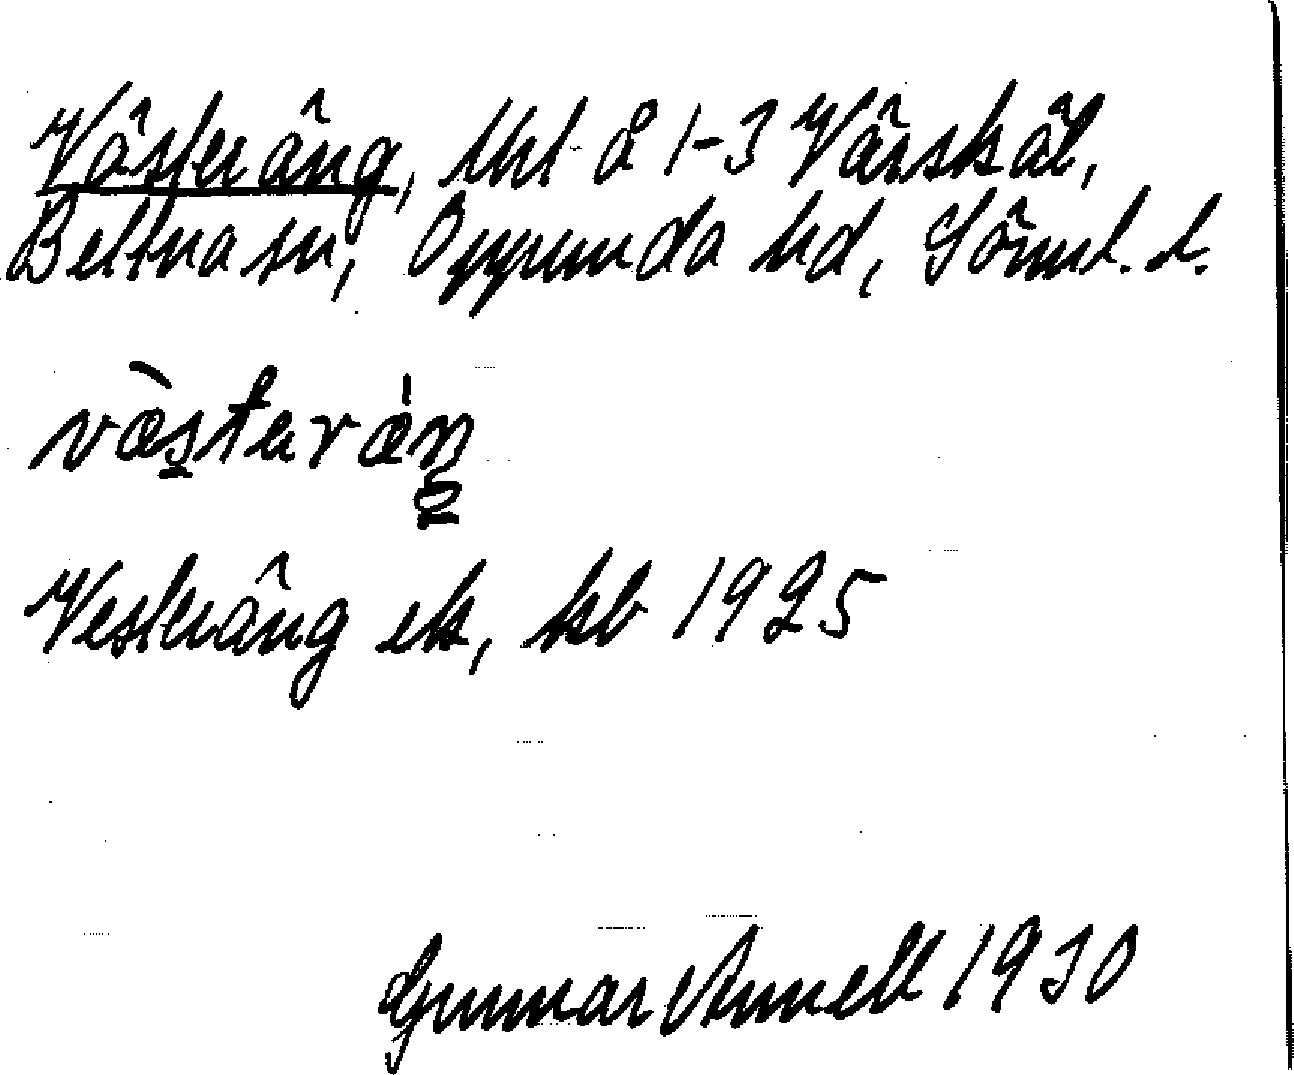 Västeräng, tkt å 1-3 Vårskäl,
Bettna sn, Oppunda hd, Söml. l.
væ̀starǽŋ
Vesteräng ek, kb 1925
Gunnar Annell 1930